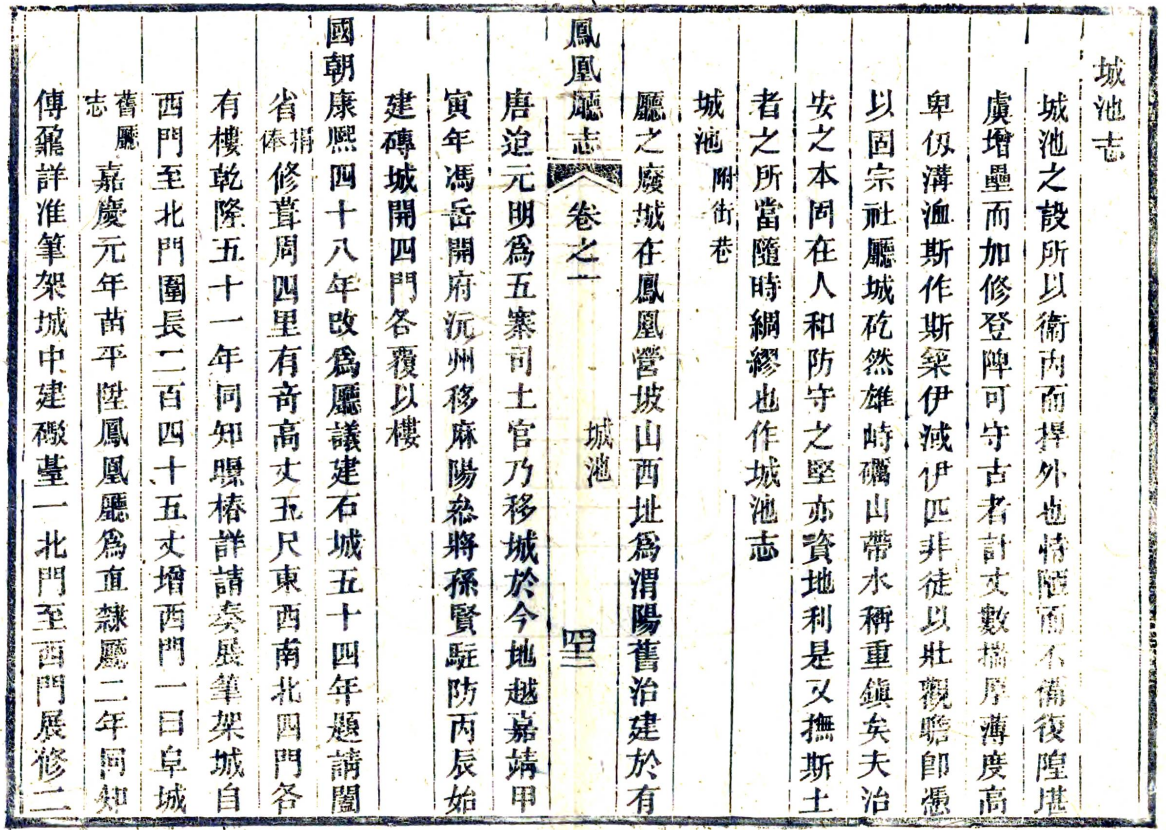 城池志
城池之設所以衛內而捍外也恃陋而不備復隍堪
虞增壘而加修登陴可守古者計丈數揣厚薄度高
卑仭溝洫斯作斯築伊減伊匹非徒以壯觀瞻卽憑
以固宗社廳城矻然雄峙礪山帶水稱重鎭矣夫治
安之本固在人和防守之堅亦資地利是又撫斯土
者之所當隨時綢繆也作城池志
城池 附街巷
廳之廢城在鳳凰營坡山西址爲渭陽舊治建於有
鳳凰廳志 卷之一 城池 四三
唐迨元明爲五寨司土官乃移城於今地越嘉靖甲
寅年馮岳開府沅州移麻陽叅將孫賢駐防丙辰始
建磚城開四門各覆以樓
國朝康熙四十八年改爲廳議建石城五十四年題請闔
省捐俸修葺周四里有奇高丈五尺東西南北四門各
有樓乾隆五十一年同知曝椿詳請奏展筆架城自
西門至北門圍長二百四十五丈增西門一曰阜城
舊廳志 嘉慶元年苗平陞鳳凰廳爲直隸廳二年同知
傅鼐詳准筆架城中建礮臺一北門至西門展修二